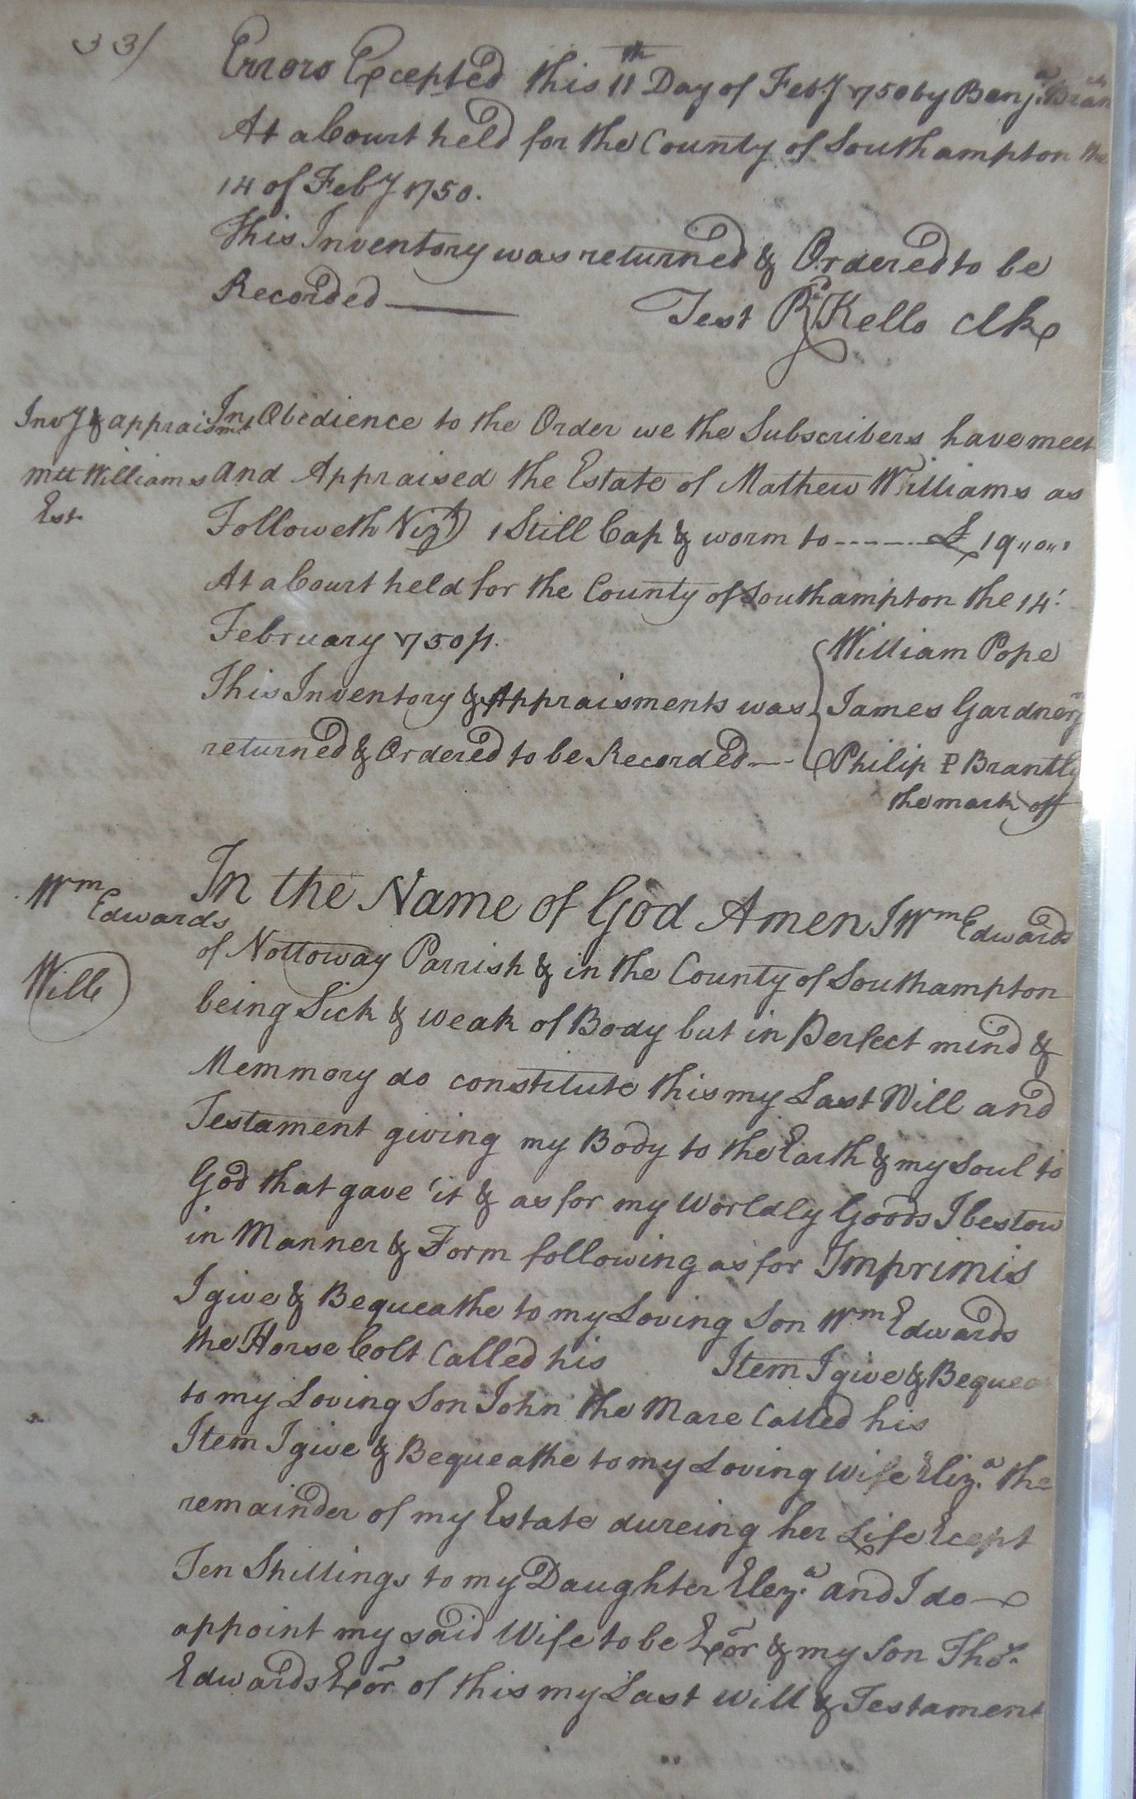 33/
Errors Excepted this 11th Day of Feby 1750 by Benja. Bran
At a Court held for the County of Southampton the
14 of Feby 1750.
This Inventory was returned & Ordered to be
Recorded
Test Rd Kello Clk
Invy & appraismt In Obedience to the Order we the Subscribers have meet
Mtt Williams and Appraised the Estate of Mathew Williams as
Est. Followeth Vizt) 1 Still Cap & worm to ------- £ 19"0"
At a Court held for the County of Southampton the 14.
February 1750/1.
William Pope
This Inventory & Appraisments was James Gardner
returned & Ordered to be Recorded Philip P Brantly
the mark off
Wm Edwards Will
In the Name of God Amen I Wm Edwards
of Nottoway Parrish & in the County of Southampton
being Sick & weak of Body but in Perfect mind &
Memmory do constitute this my Last Will and
Testament giving my Body to the Earth & my Soul to
God that gave it & as for my Worldly Goods I bestow
in Manner & Form following as for Imprimis
I give & Bequeathe to my Loving Son Wm Edwards
the Horse Colt Called his Item I give & Bequea
to my Loving Son John the Mare Called his
Item I give & Bequeathe to my Loving Wife Eliza. the
remainder of my Estate dureing her Life Ecept
Ten Shillings to my Daughter Eleza. and I do
appoint my said Wife to be Exor & my Son Thos.
Edwards Exor of this my Last Will & Testament